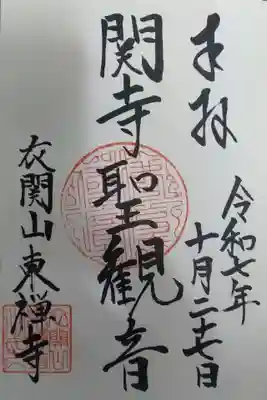 奉拝
令和七年
十月二十七日
関寺聖観音
衣関山東禅寺